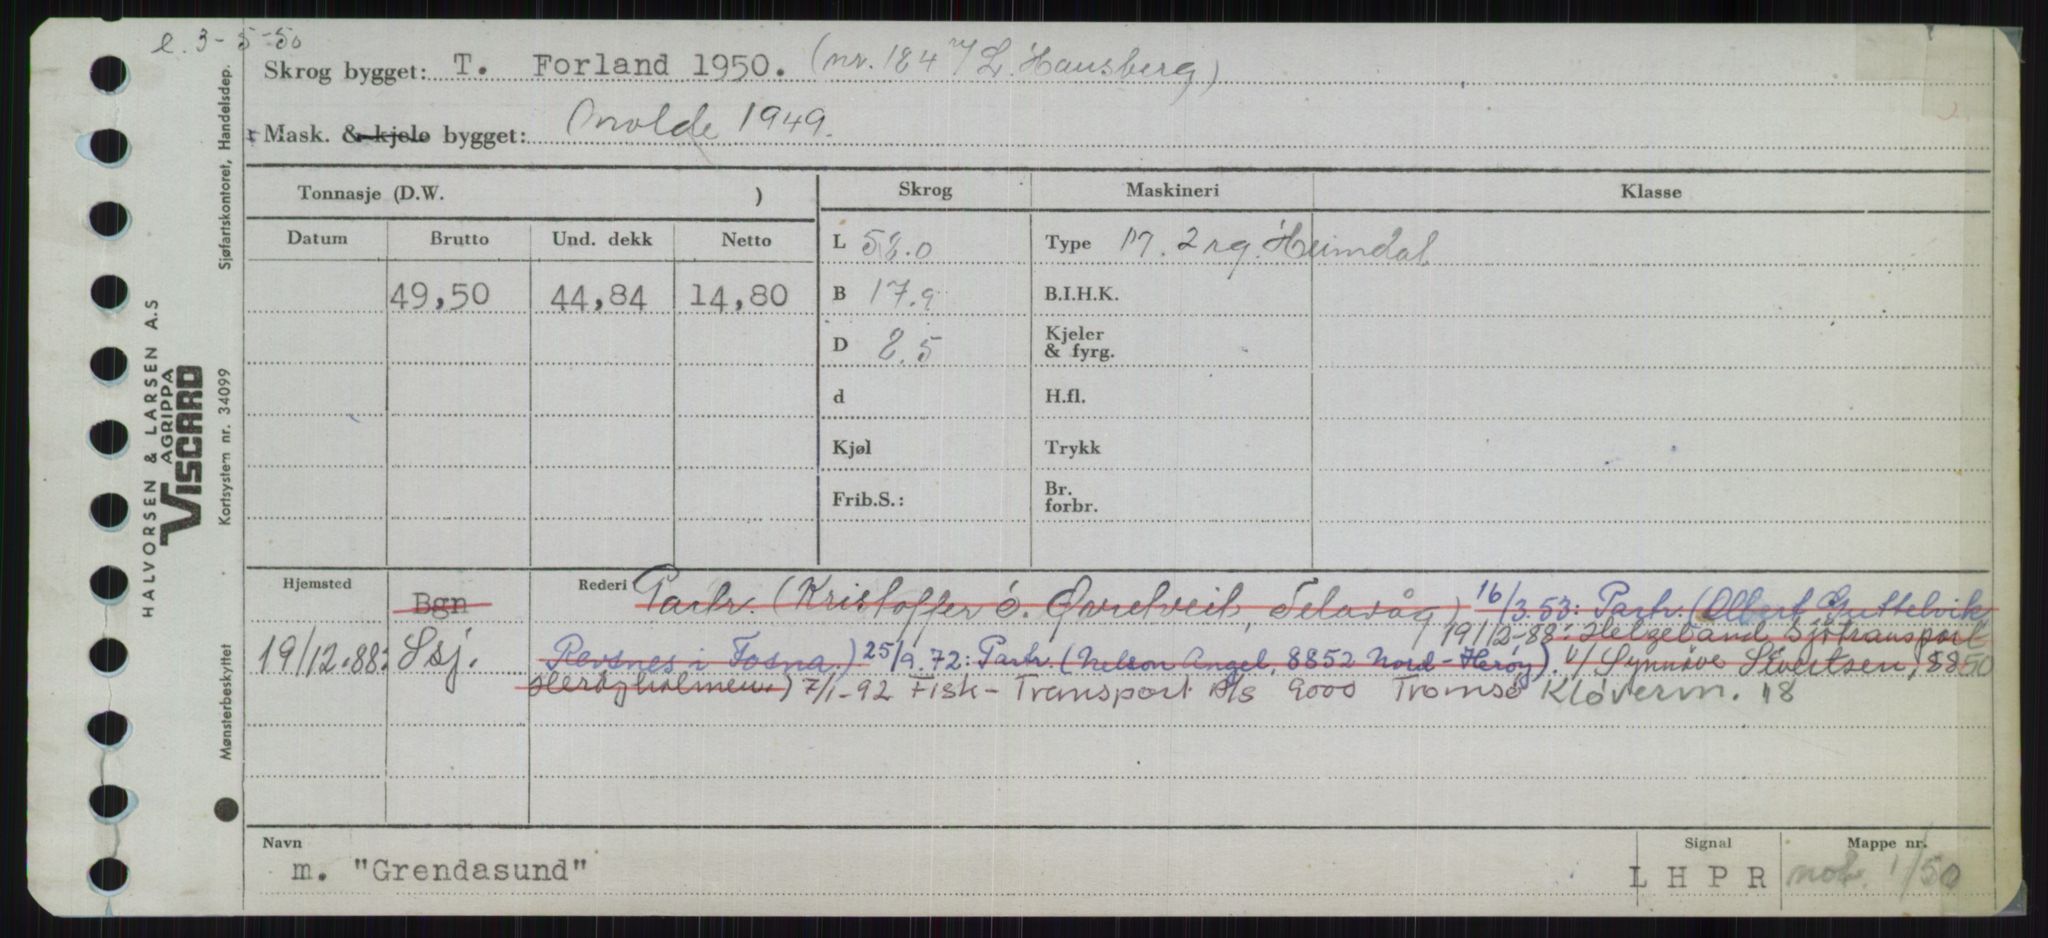 e. 3-5-50
Skrog bygget: T. Forland 1950. (nr. 184 L. Hausberg)
Mask. & kjele bygget: Molde 1949.
Tonnasje (D.W. )
Skrog
Maskineri
Klasse
Datum
Brutto
Und. dekk
Netto
49,50
44,84
14,80
L 58.0
B 17.9
D 8.5
d
Kjøl
Frib.S.:
Type M. 2 sg. Heimdal
B.I.H.K.
Kjeler
& fyrg.
H.fl.
Trykk
Br.
forbr.
Hjemsted
Bgn
19/12.88: Ssj.
Rederi Partr. (Kristoffer Ó. Øvretveit, Telavåg) 16/3.53: Partr. (Albert Guttelvik
Revsnes i Fosna.) 25/9.72: Partr. (Nelson Angel, 8852 Nord-Herøy). 19/12-88: Helgeland Sjøtransport
v/ Synnøve Sivertsen, 8850
Herøyholmen.) 7/1-92 Fisk-Transport A/s 9000 Tromsø Kløverm. 18
Navn
m. "Grendasund"
Signal
L H P R
Mappe nr.
mob. 1/50
HALVORSEN & LARSEN A.S
AGRIPPA
VISCARD
Sjøfartskontoret, Handelsdep.
Kortsystem nr. 34099
Mønsterbeskyttet